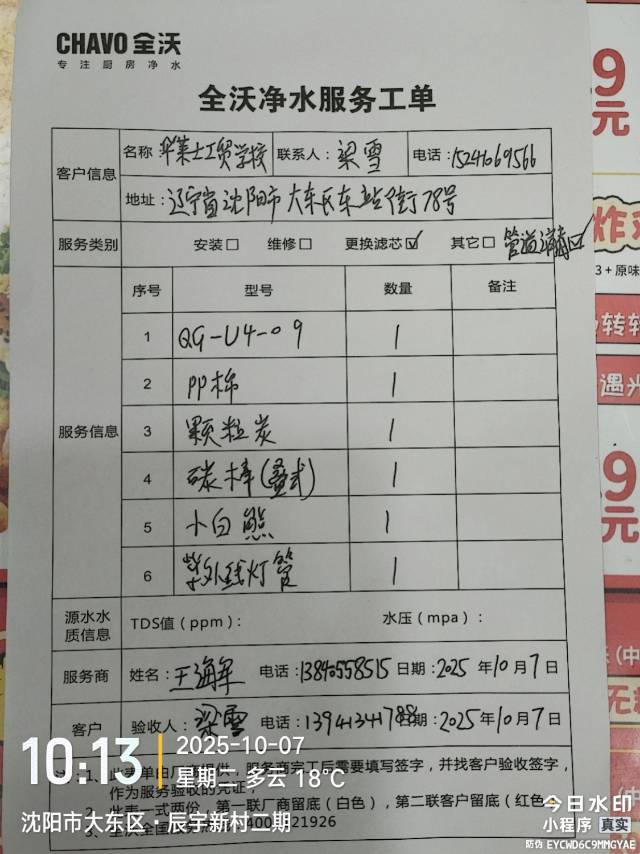 CHAVO 全沃
专注厨房净水
全沃净水服务工单
客户信息
名称 华莱士工贸学校 联系人：梁雪 电话：15241069566
地址：辽宁省沈阳市大东区东站街78号
服务类别 安装□ 维修□ 更换滤芯☑ 其它□ 管道清☑
服务信息
序号 型号 数量 备注
1 QG-U4-09 1
2 PP棉 1
3 颗粒炭 1
4 碳棒(叠式) 1
5 小白熊 1
6 紫外线灯管 1
源水水质信息 TDS值（ppm）： 水压（mpa）：
服务商 姓名：王海军 电话：13840558515 日期：2025年10月7日
客户 验收人：梁雪 电话：139413417 日期：2025年10月7日
注：1、此表单由厂商提供，服务商完工后需要填写签字，并找客户验收签字，
作为服务验收的凭证；
2、此表一式两份，第一联厂商留底（白色），第二联客户留底（红色
3、全沃全国 400 21926
10:13
2025-10-07
星期二 多云 18℃
沈阳市大东区·辰宇新村二期
今日水印
小程序 真实
防伪 EYCWD6C9MMGYAE
9
元
炸
3+原味
转转
遇光
9
元
(中
无
(中